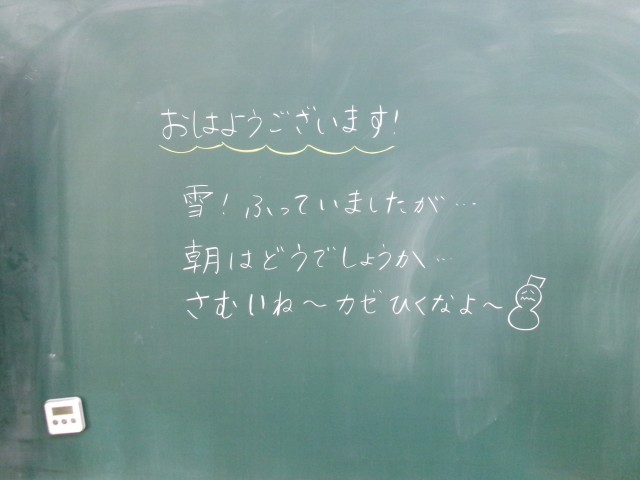 おはようございます!
雪!ふっていましたが…
朝はどうでしょうか…
さむいね〜カゼひくなよ〜